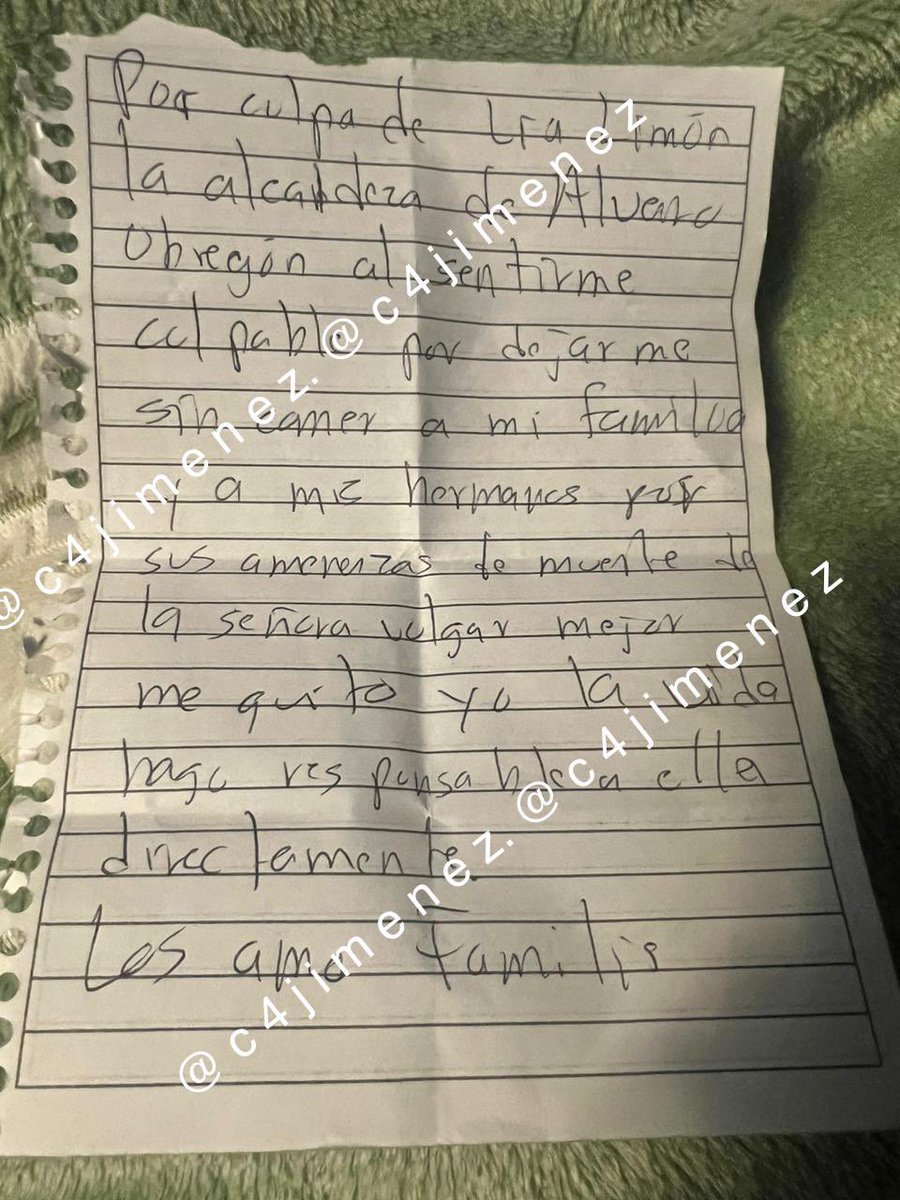 Por culpa de Lia Limón
la alcaldeza de Alvaro
obregón al sentirme
culpable por dejarme
sin comer a mi familia
y a mis hermanos por
sus amenenzas de muerte de
la señora vulgar mejor
me quito yo la vida
hago responsable a ella
directamente
Los amo familis
@c4jimenez. @c4jimenez
@c4jimenez. @c4jimenez